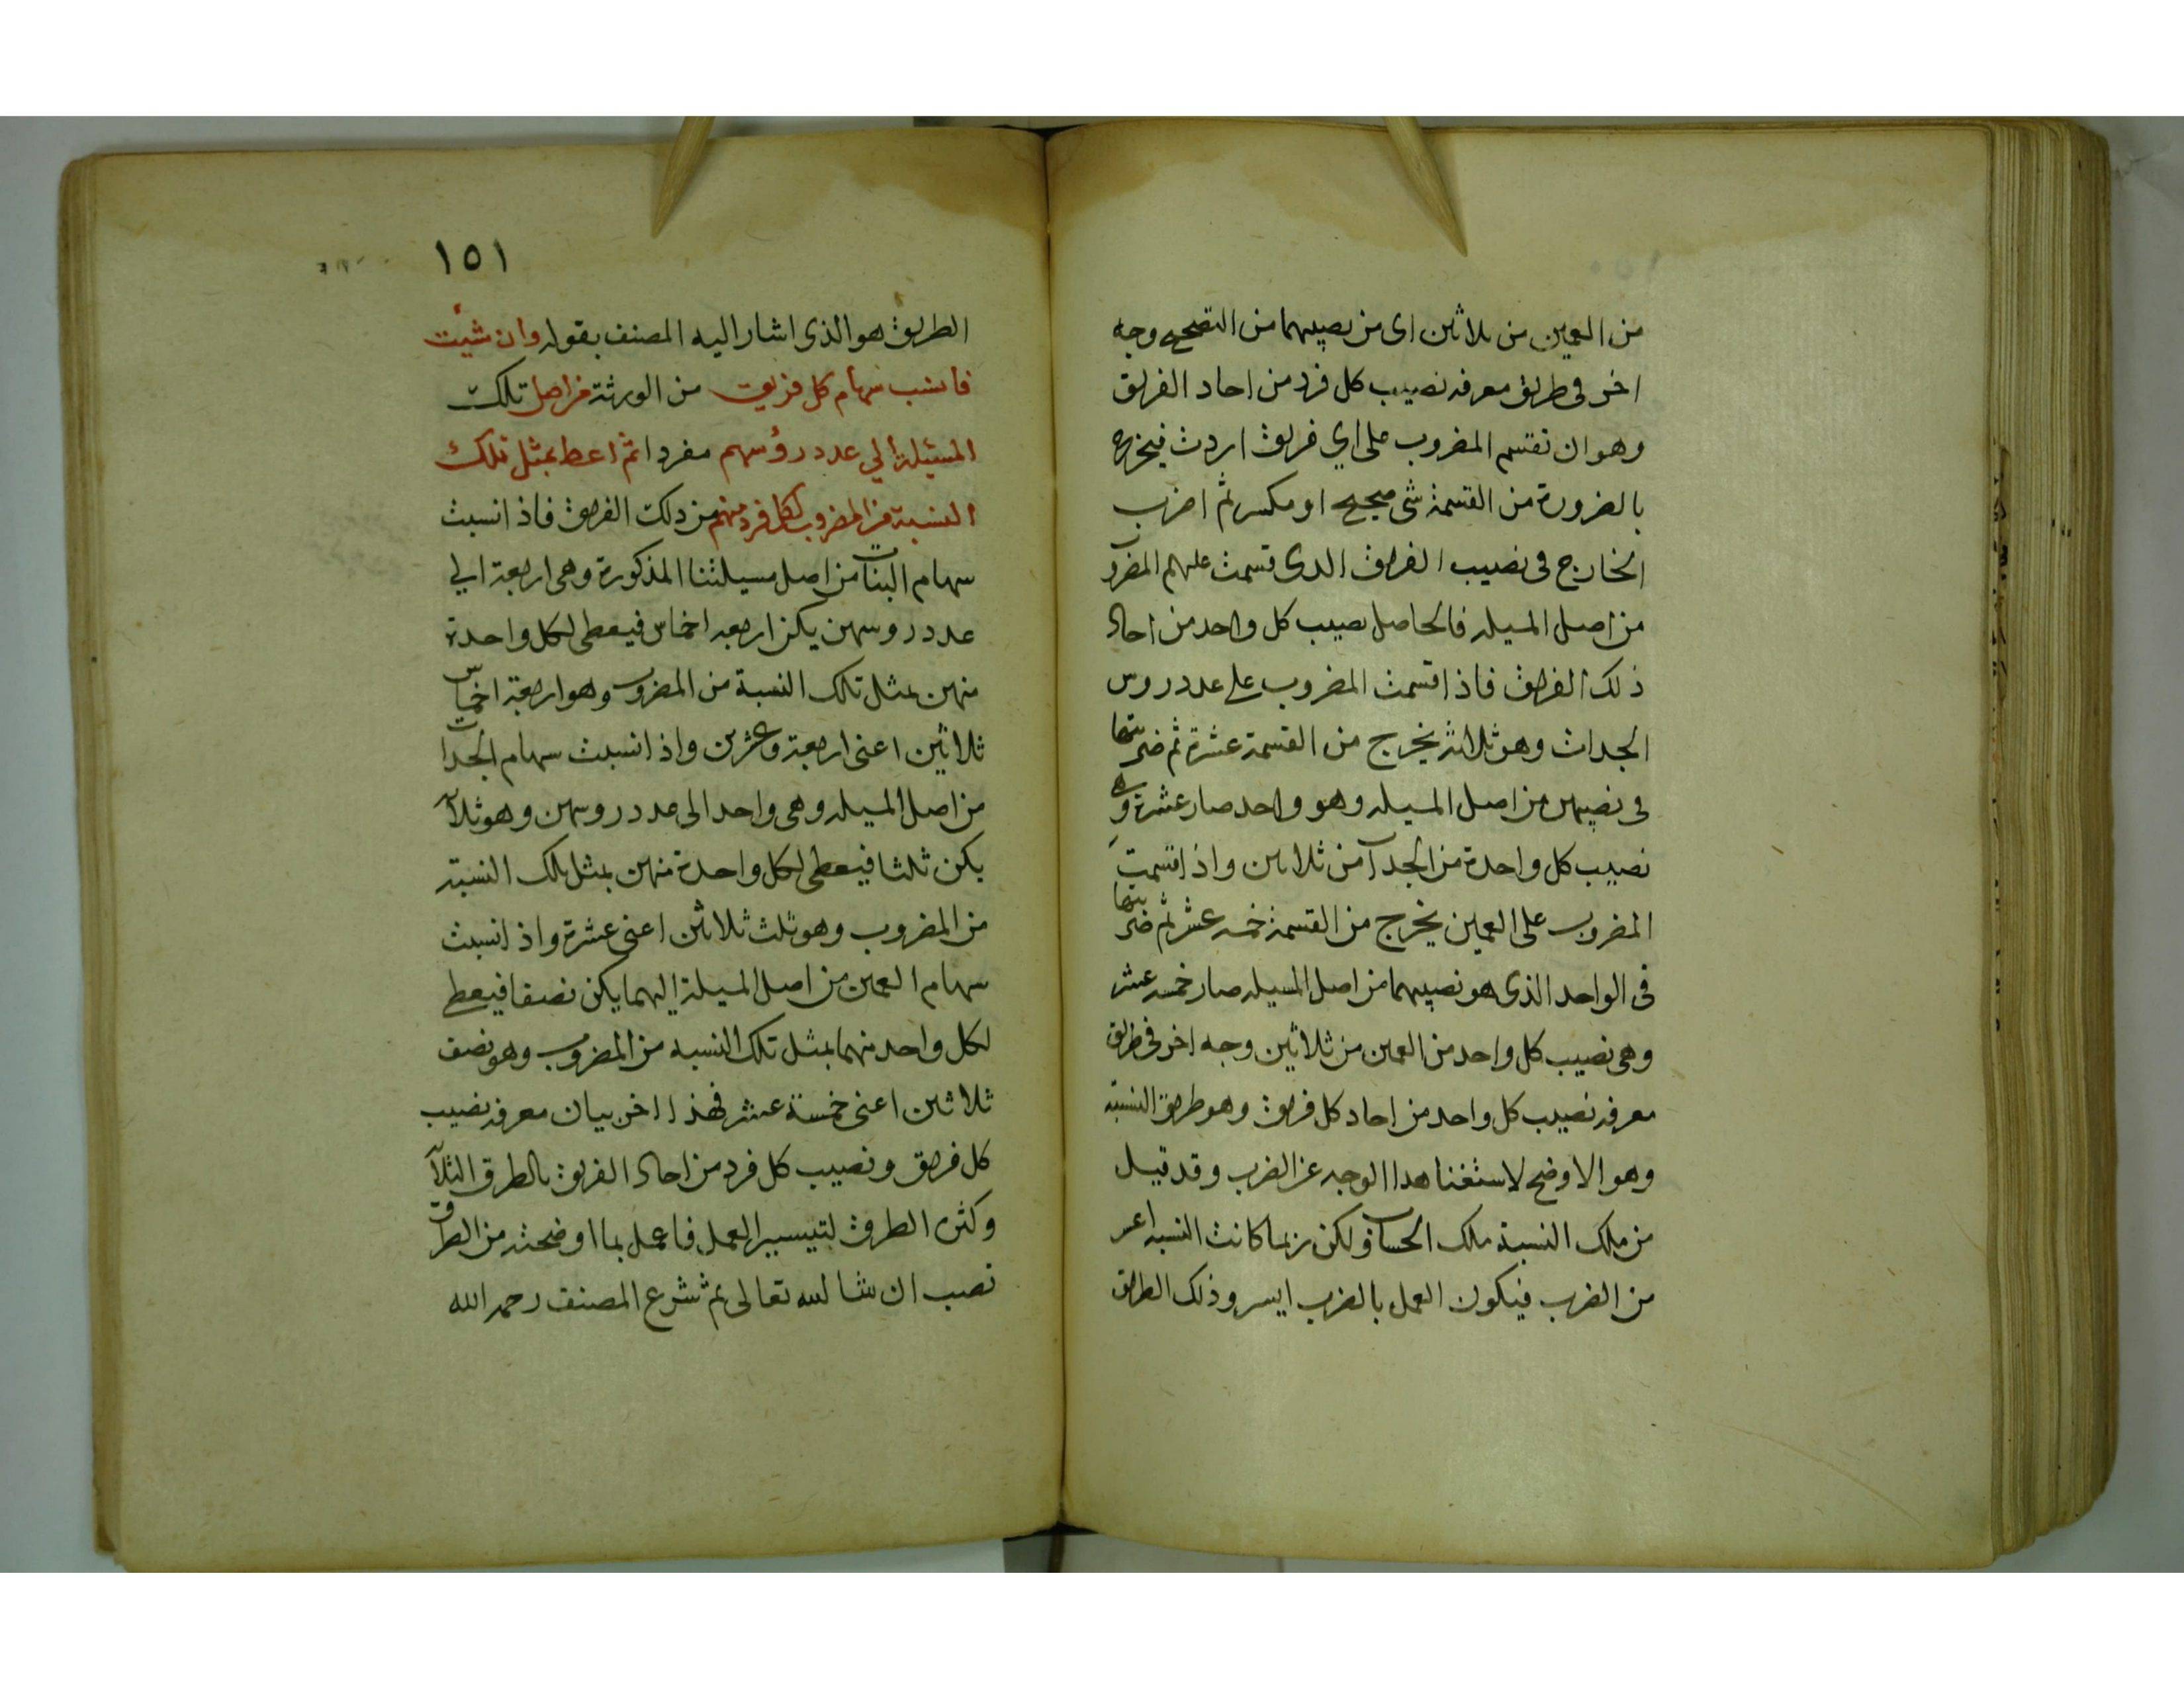 من العمين من ثلاثين اى من نصيبهما من التصحيح وجه
اخر فى طريق معرفة نصيب كل فرد من احاد الفريق
وهو ان تقسم المضروب على اي فريق اردت فيخرج
بالضرورة من القسمة شى صحيح او مكسر ثم اضرب
الخارج فى نصيب الفريق الذى قسمت عليهم المضروب
من اصل المسيلة فالحاصل نصيب كل واحد من احاد
ذلك الفريق فاذا قسمت المضروب على عدد روس
الجدات وهو ثلاثة يخرج من القسمة عشرة ثم ضربتها
فى نصيبهن من اصل المسيلة وهو واحد صار عشرة وهى
نصيب كل واحدة من الجدات من ثلاثين واذا قسمت
المضروب على العمين يخرج من القسمة خمسة عشر ثم ضربتها
فى الواحد الذى هو نصيبهما من اصل المسيلة صار خمسة عشر
وهى نصيب كل واحد من العمين من ثلاثين وجه اخر فى طريق
معرفة نصيب كل واحد من احاد كل فريق وهو طريق النسبة
وهو الاوضح لاستغنا هذا الوجه عن الضرب وقد قيل
من ملك النسبة ملك الحساب ولكن ربما كانت النسبة اعسر
من الضرب فيكون العمل بالضرب ايسر وذلك الطريق
١٥١
الطريق هو الذى اشار اليه المصنف بقوله وان شيئت
فانسب سهام كل فريق من الورثة من اصل تلك
المسئيلة الي عدد رؤسهم مفردا ثم اعط بمثل تلك
النسبة من المضروب لكل فرد منهم من ذلك الفريق فاذا نسبت
سهام البنات من اصل مسيلتنا المذكورة وهى اربعة الي
عدد روسهن يكن اربعة اخماس فيعطى لكل واحدة
منهن بمثل تلك النسبة من المضروب وهو اربعة اخماس
ثلاثين اعنى اربعة وعشرين واذا نسبت سهام الجدات
من اصل المسيلة وهى واحد الى عدد روسهن وهو ثلاث
يكن ثلثا فيعطى لكل واحدة منهن بمثل تلك النسبة
من المضروب وهو ثلث ثلاثين اعنى عشرة واذا نسبت
سهام العمين من اصل المسيلة اليهما يكن نصفا فيعطى
لكل واحد منهما بمثل تلك النسبة من المضروب وهو نصف
ثلاثين اعنى خمسة عشر فهذا اخر بيان معرفة نصيب
كل فريق ونصيب كل فرد من احاد الفريق بالطرق الثلاث
وكثرة الطرق لتيسير العمل فاعمل بما اوضحته من الطرق
تصب ان شا لله تعالى ثم شرع المصنف رحمه الله